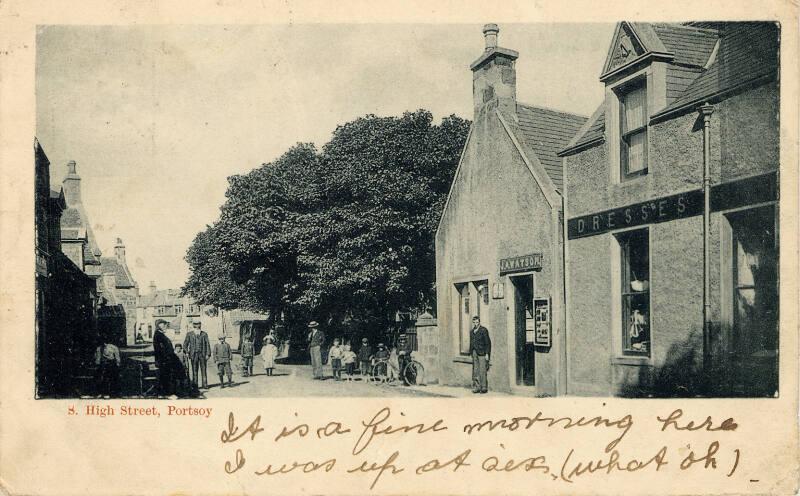 DRESSES
J.A.WATSON
8. High Street, Portsoy
It is a fine morning here
I was up at six. (what oh)